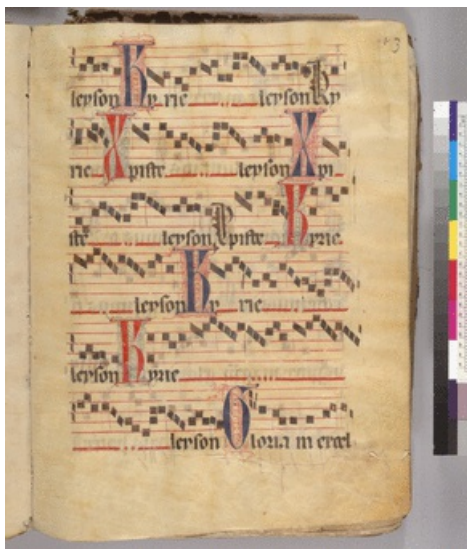 leyson Ky rie leyson Ky
rie Xpiste leyson Xpi
ste leyson Xpiste Kyrie
leyson Ky rie
leyson Kyrie
leyson Gloria in excel